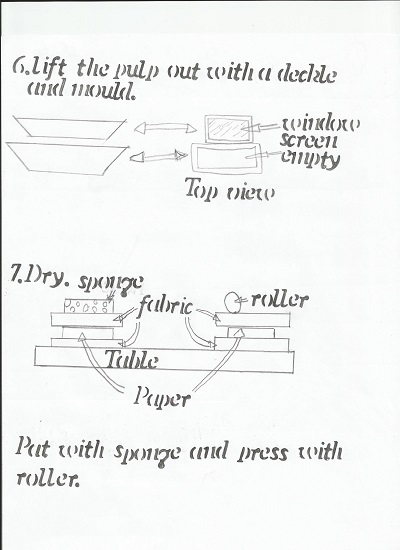 6. Lift the pulp out with a deckle
and mould.
window
screen
empty
Top view
7. Dry.
sponge
fabric
roller
Table
Paper
Pat with sponge and press with
roller.